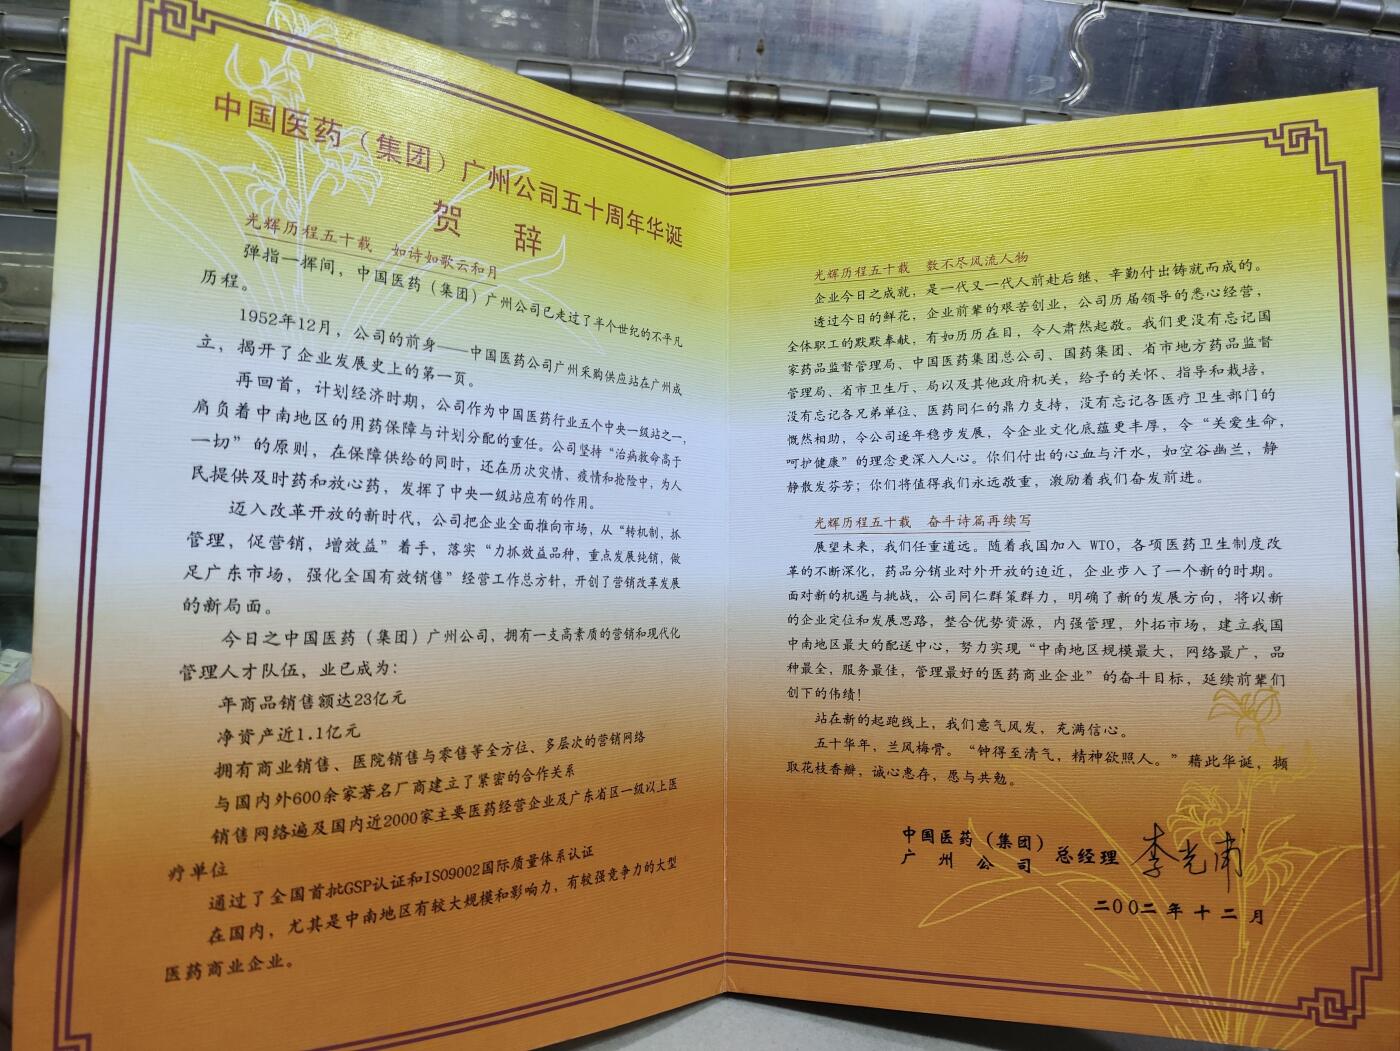 中国医药（集团）广州公司五十周年华诞
贺 辞
光辉历程五十载 如诗如歌云和月
弹指一挥间，中国医药（集团）广州公司已走过了半个世纪的不平凡
历程。
1952年12月，公司的前身——中国医药公司广州采购供应站在广州成
立，揭开了企业发展史上的第一页。
再回首，计划经济时期，公司作为中国医药行业五个中央一级站之一，
肩负着中南地区的用药保障与计划分配的重任。公司坚持“治病救命高于
一切”的原则，在保障供给的同时，还在历次灾情、疫情和抢险中，为人
民提供及时药和放心药，发挥了中央一级站应有的作用。
迈入改革开放的新时代，公司把企业全面推向市场，从“转机制，抓
管理，促营销，增效益”着手，落实“力抓效益品种，重点发展纯销，做
足广东市场，强化全国有效销售”经营工作总方针，开创了营销改革发展
的新局面。
今日之中国医药（集团）广州公司，拥有一支高素质的营销和现代化
管理人才队伍，业已成为：
年商品销售额达23亿元
净资产近1.1亿元
拥有商业销售、医院销售与零售等全方位、多层次的营销网络
与国内外600余家著名厂商建立了紧密的合作关系
销售网络遍及国内近2000家主要医药经营企业及广东省区一级以上医
疗单位
通过了全国首批GSP认证和ISO9002国际质量体系认证
在国内，尤其是中南地区有较大规模和影响力，有较强竞争力的大型
医药商业企业。
光辉历程五十载 数不尽风流人物
企业今日之成就，是一代又一代人前赴后继、辛勤付出铸就而成的。
透过今日的鲜花，企业前辈的艰苦创业，公司历届领导的悉心经营，
全体职工的默默奉献，有如历历在目，令人肃然起敬。我们更没有忘记国
家药品监督管理局、中国医药集团总公司、国药集团、省市地方药品监督
管理局、省市卫生厅、局以及其他政府机关，给予的关怀、指导和栽培，
没有忘记各兄弟单位、医药同仁的鼎力支持，没有忘记各医疗卫生部门的
慨然相助，令公司逐年稳步发展，令企业文化底蕴更丰厚，令“关爱生命，
呵护健康”的理念更深入人心。你们付出的心血与汗水，如空谷幽兰，静
静散发芬芳；你们将值得我们永远敬重，激励着我们奋发前进。
光辉历程五十载 奋斗诗篇再续写
展望未来，我们任重道远。随着我国加入 WTO，各项医药卫生制度改
革的不断深化，药品分销业对外开放的迫近，企业步入了一个新的时期。
面对新的机遇与挑战，公司同仁群策群力，明确了新的发展方向，将以新
的企业定位和发展思路，整合优势资源，内强管理，外拓市场，建立我国
中南地区最大的配送中心，努力实现“中南地区规模最大，网络最广，品
种最全，服务最佳，管理最好的医药商业企业”的奋斗目标，延续前辈们
创下的伟绩！
站在新的起跑线上，我们意气风发，充满信心。
五十华年，兰风梅骨。“钟得至清气，精神欲照人。”藉此华诞，撷
取花枝香瓣，诚心惠存，愿与共勉。
中国医药（集团）
广州公司 总经理 李光甫
二00二年十二月